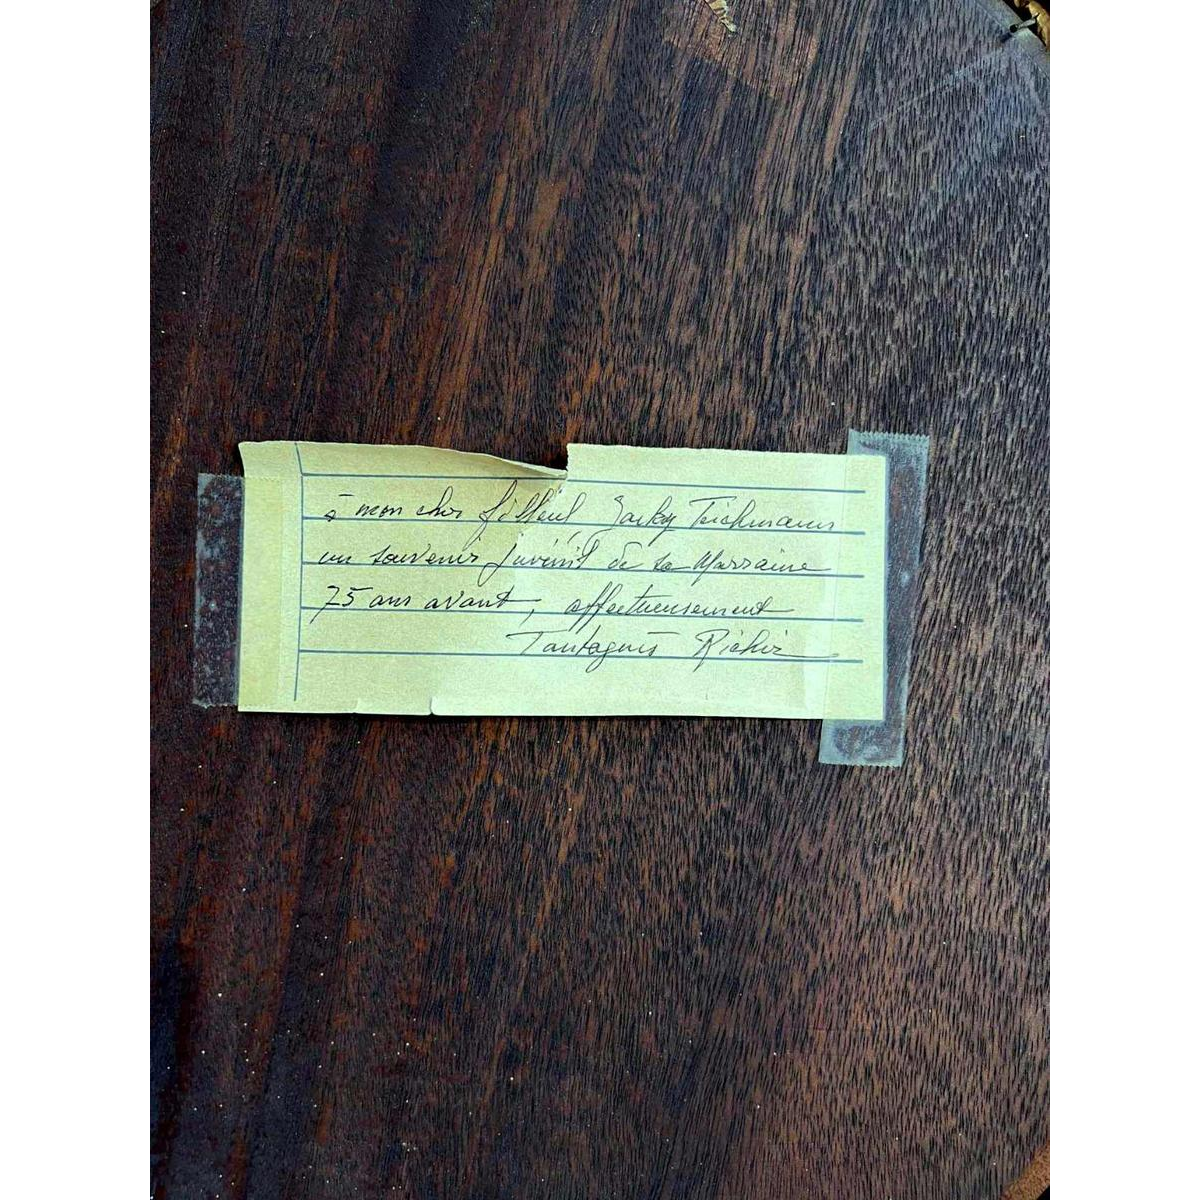 à mon cher filleul Jacky Teichmann
un souvenir juvénil de sa Marraine
75 ans avant, affectueusement
Richir